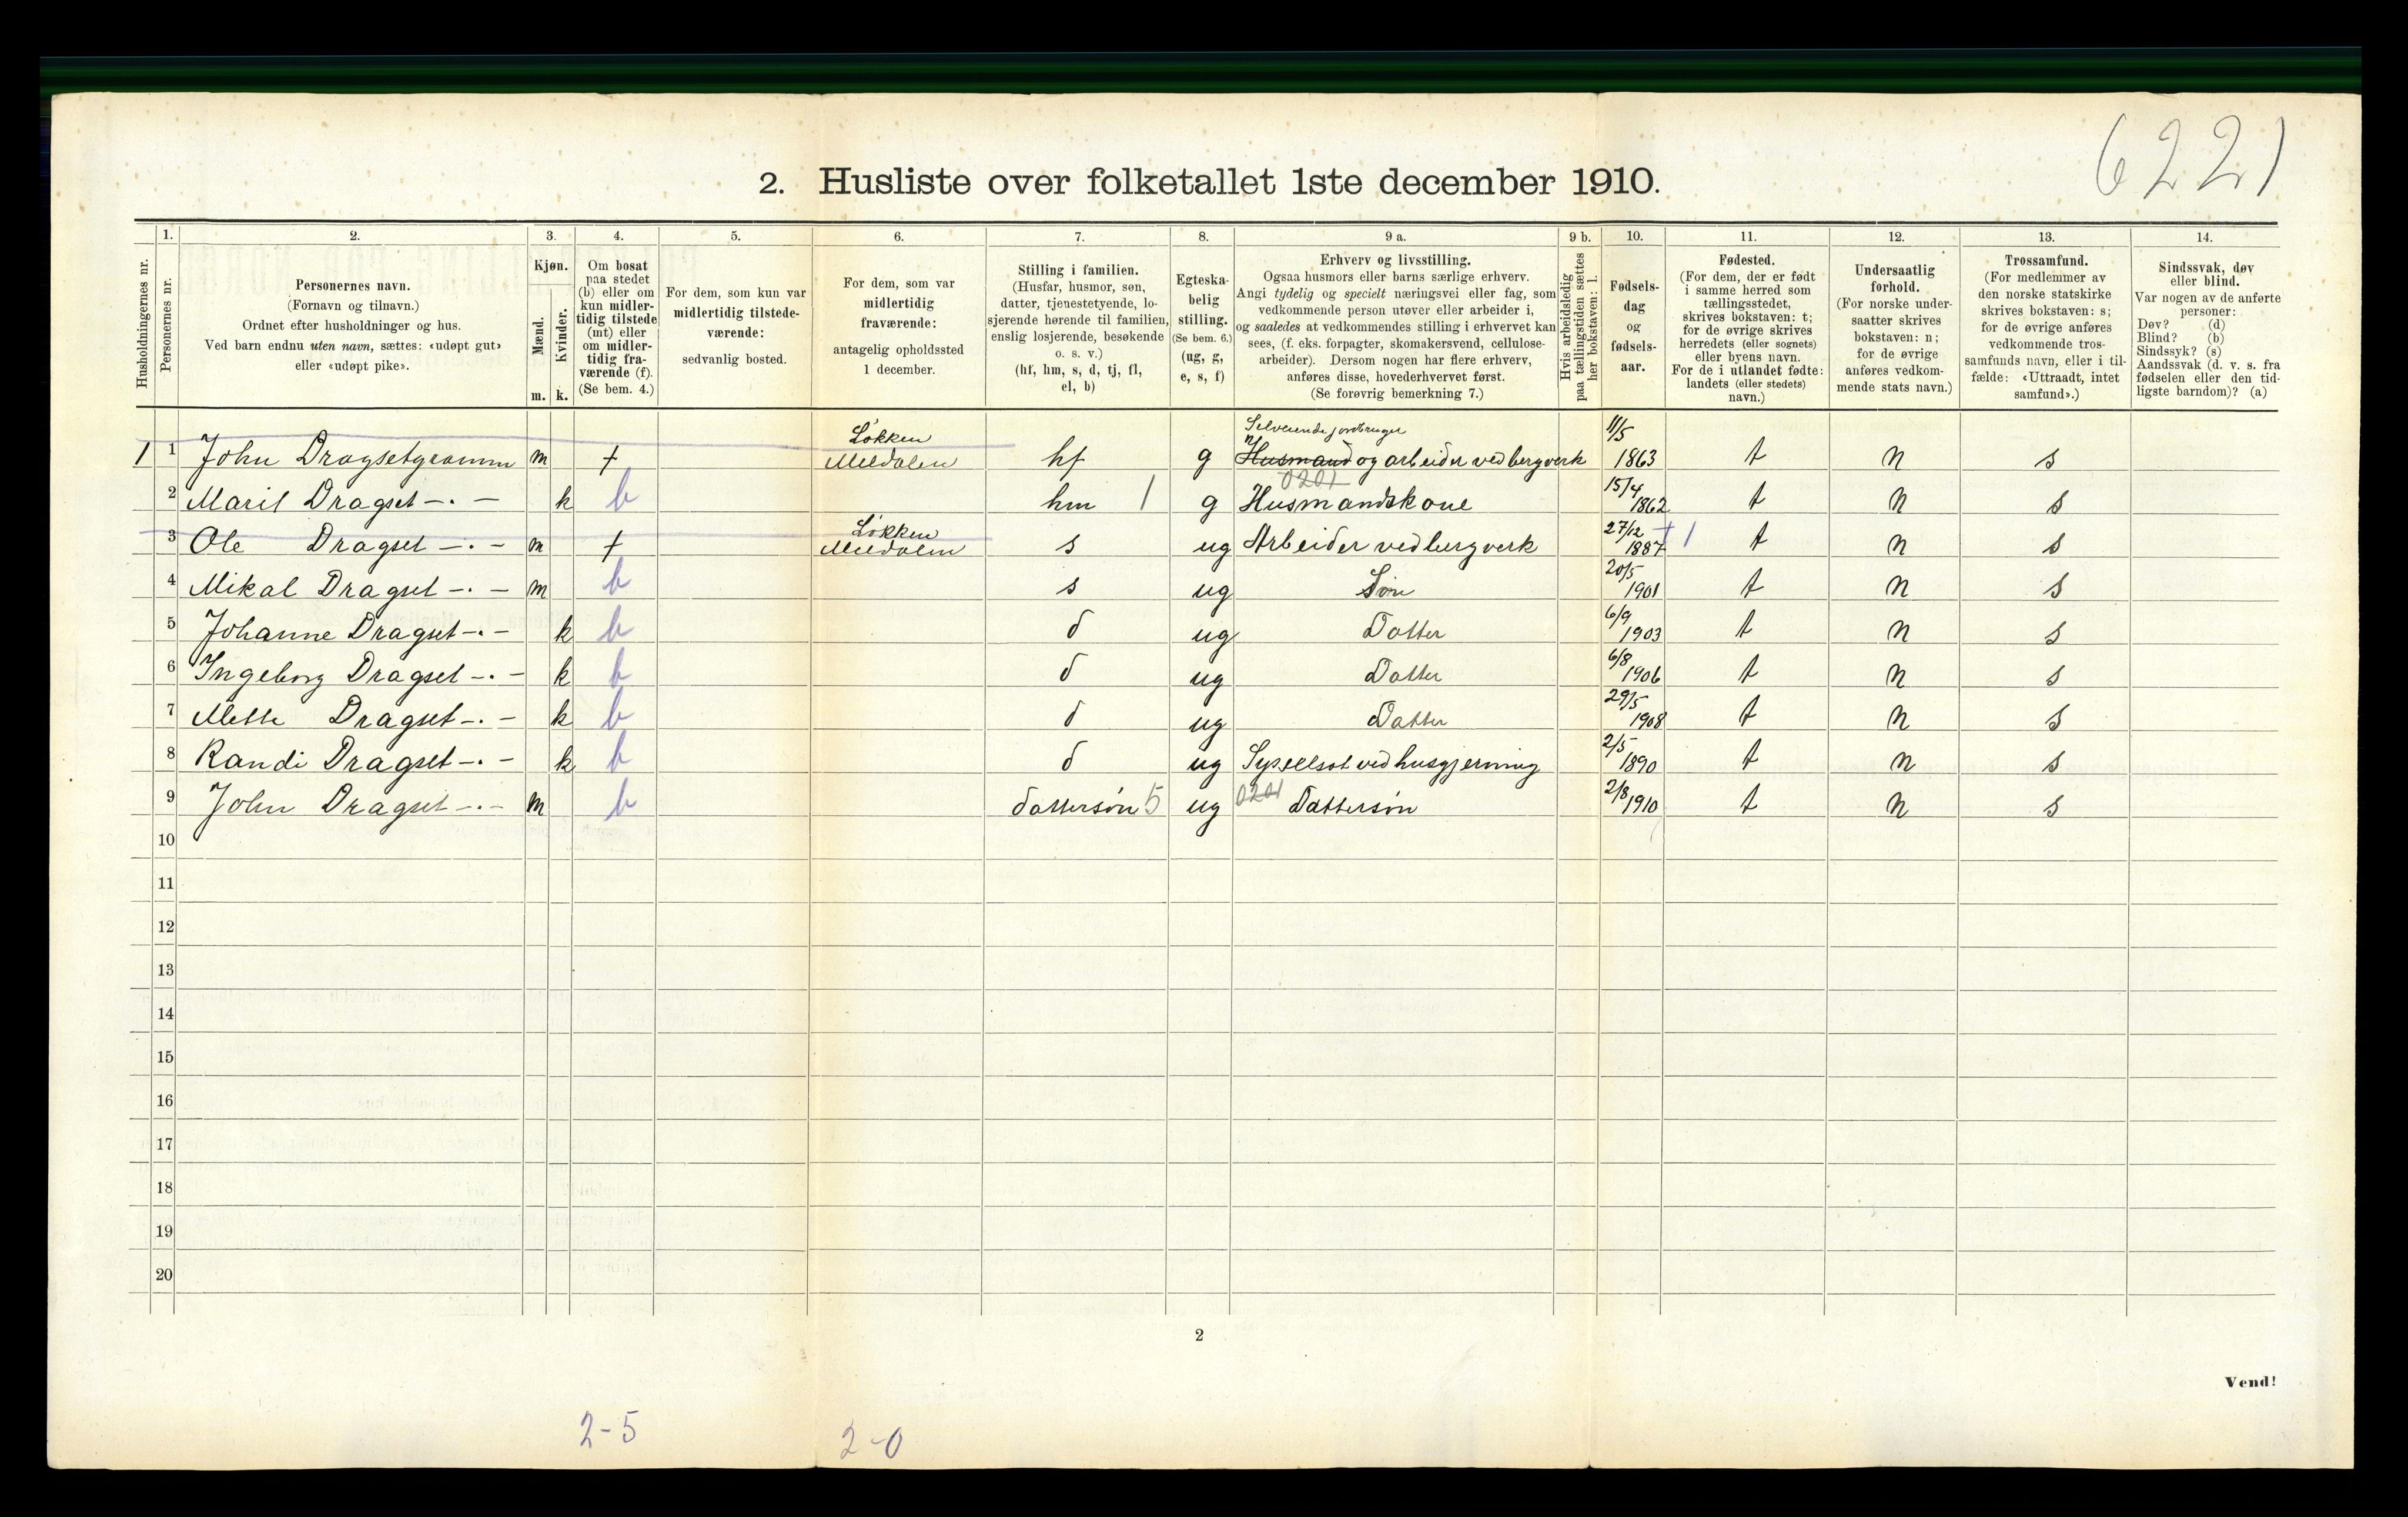 6221
2. Husliste over folketallet 1ste december 1910.
1. 2. 3. 4. 5. 6. 7. 8. 9 a. 9 b. 10. 11. 12. 13. 14.
Husholdningernes nr.
Personernes nr.
Personernes navn.
(Fornavn og tilnavn.)
Ordnet efter husholdninger og hus.
Ved barn endnu uten navn, sættes: «udøpt gut»
eller «udøpt pike».
Kjøn.
Mænd.
Kvinder.
m. k.
Om bosat
paa stedet
(b) eller om
kun midler-
tidig tilstede
(mt) eller
om midler-
tidig fra-
værende (f).
(Se bem. 4.)
For dem, som kun var
midlertidig tilstede-
værende:
sedvanlig bosted.
For dem, som var
midlertidig
fraværende:
antagelig opholdssted
1 december.
Stilling i familien.
(Husfar, husmor, søn,
datter, tjenestetyende, lo-
sjerende hørende til familien,
enslig losjerende, besøkende
o. s. v.)
(hf, hm, s, d, tj, fl,
el, b)
Egteska-
belig
stilling.
(Se bem. 6.)
(ug, g,
e, s, f)
Erhverv og livsstilling.
Ogsaa husmors eller barns særlige erhverv.
Angi tydelig og specielt næringsvei eller fag, som
vedkommende person utøver eller arbeider i,
og saaledes at vedkommendes stilling i erhvervet kan
sees, (f. eks. forpagter, skomakersvend, cellulose-
arbeider). Dersom nogen har flere erhverv,
anføres disse, hovederhvervet først.
(Se forøvrig bemerkning 7.)
Hvis arbeidsledig
paa tællingstiden sættes
her bokstaven: l.
Fødsels-
dag
og
fødsels-
aar.
Fødested.
(For dem, der er født
i samme herred som
tællingsstedet,
skrives bokstaven: t;
for de øvrige skrives
herredets (eller sognets)
eller byens navn.
For de i utlandet fødte:
landets (eller stedets)
navn.)
Undersaatlig
forhold.
(For norske under-
saatter skrives
bokstaven: n;
for de øvrige
anføres vedkom-
mende stats navn.)
Trossamfund.
(For medlemmer av
den norske statskirke
skrives bokstaven: s;
for de øvrige anføres
vedkommende tros-
samfunds navn, eller i til-
fælde: «Uttraadt, intet
samfund».)
Sindssvak, døv
eller blind.
Var nogen av de anførte
personer:
Døv? (d)
Blind? (b)
Sindssyk? (s)
Aandssvak (d. v. s. fra
fødselen eller den tid-
ligste barndom)? (a)
Løkken Selveiende jordbruger 11/5
1 1 John Dragsetgramm m f Meldalen hf g Husmand og arbeider ved bergverk 1863 t n s
0201
2 Marit Dragset -.- k b hm 1 g Husmandskone 15/4 1862 t n s
Løkken
3 Ole Dragset -.- m f Meldalen s ug Arbeider ved bergverk 27/12 1887 1 t n s
4 Mikal Dragset -.- m b s ug Søn 20/5 1901 t n s
5 Johanne Dragset -.- k b d ug Datter 6/9 1903 t n s
6 Ingeborg Dragset -.- k b d ug Datter 6/8 1906 t n s
7 Mette Dragset -.- k b d ug Datter 29/5 1908 t n s
8 Randi Dragset -.- k b d ug Sysselsat ved husgjerning 2/5 1890 t n s
9 John Dragset -.- m b dattersøn 5 ug 0201 Dattersøn 2/8 1910 t n s
10
11
12
13
14
15
16
17
18
19
20
2
Vend!
2-5 2-0